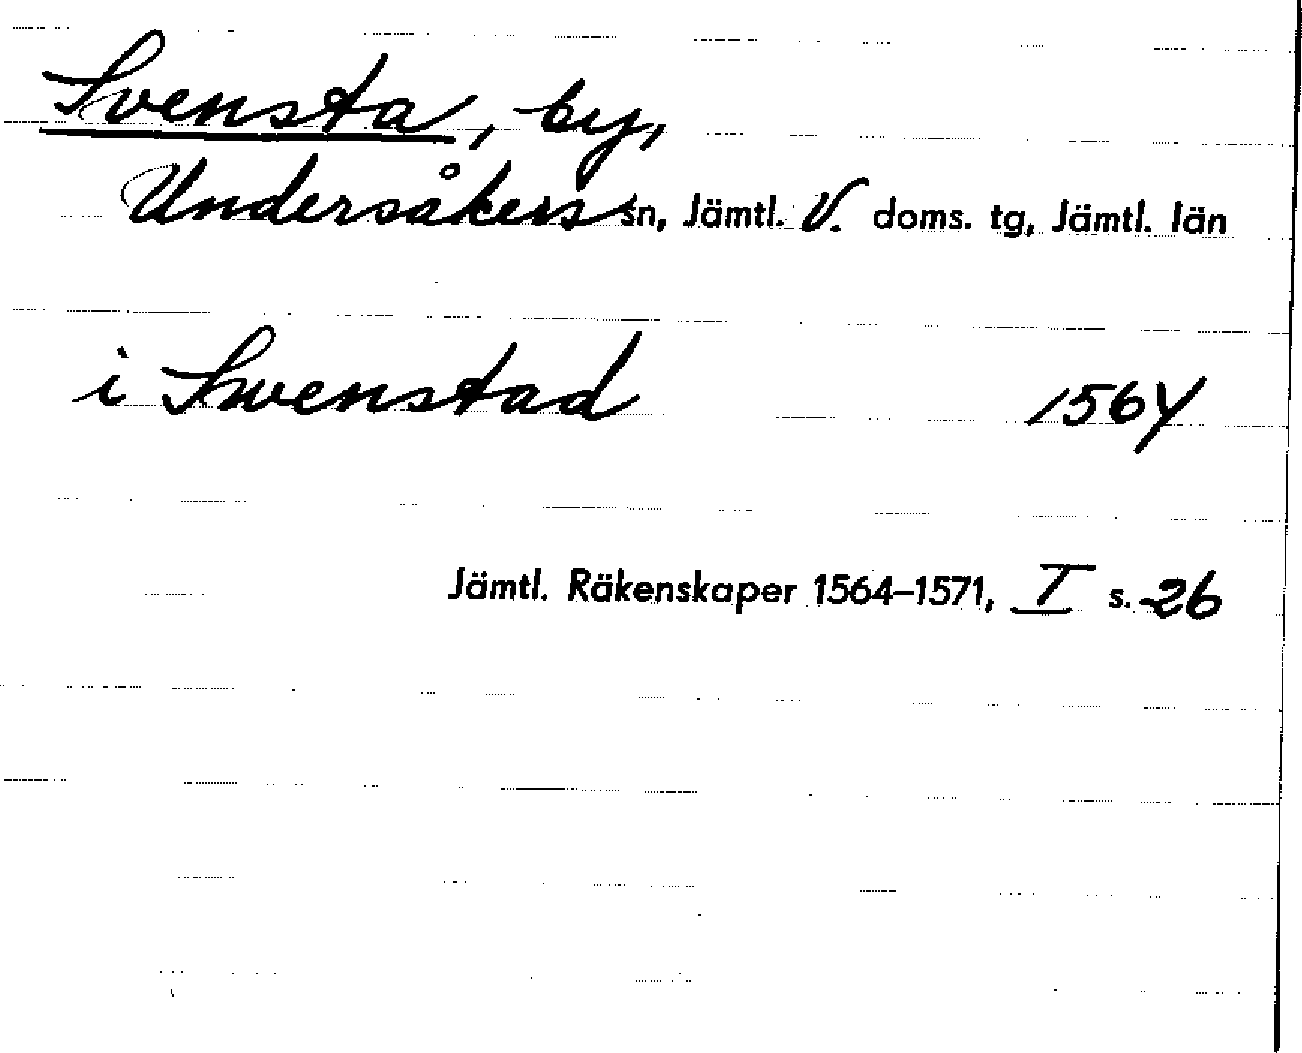 Svensta, by,
Undersåkers sn, Jämtl. V. doms. tg, Jämtl. län
i Swenstad 1564
Jämtl. Räkenskaper 1564–1571, I s. 26